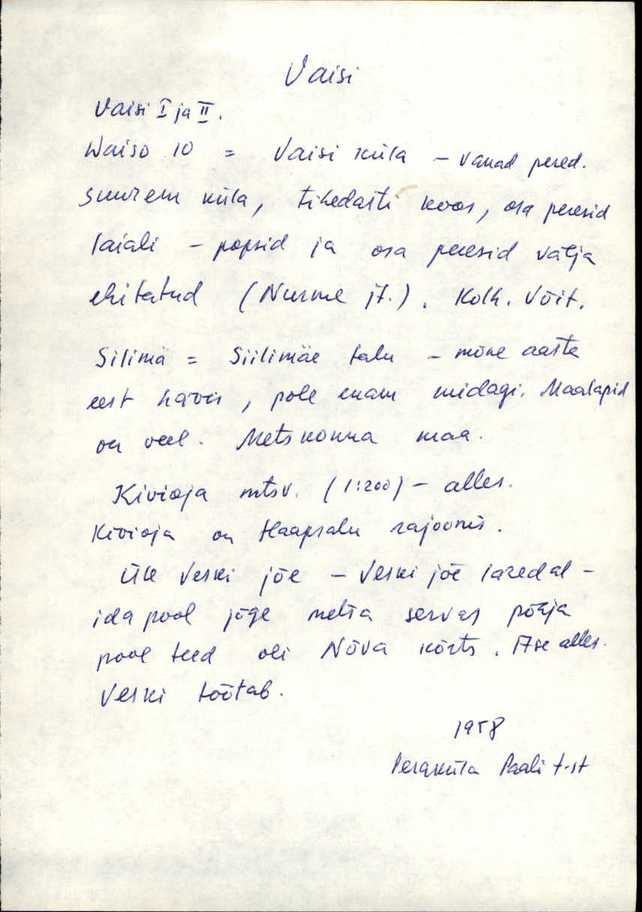 Vaisi
Vaisi I ja II.
Waiso 10 = Vaisi küla – vanad pered.
Suurem küla, tihedasti koos, osa peresid
laiali – popsid ja osa peresid välja
ehitatud (Nurme jt.). Kolh. Võit.
Silimä = Siilimäe talu – mõne aasta
eest hävis, pole enam midagi. Maalapid
on veel. Metskonna maa.
Kivioja mtsv. (1:200) – alles.
Kivioja on Haapsalu rajoonis.
Üks Veski jõe – Veski jõe laredal –
ida pool jõge metsa servas põhja
pool teed oli Nõva kõrts. Ase alles.
Veski töötab.
1958
Peraküla Paali t-st